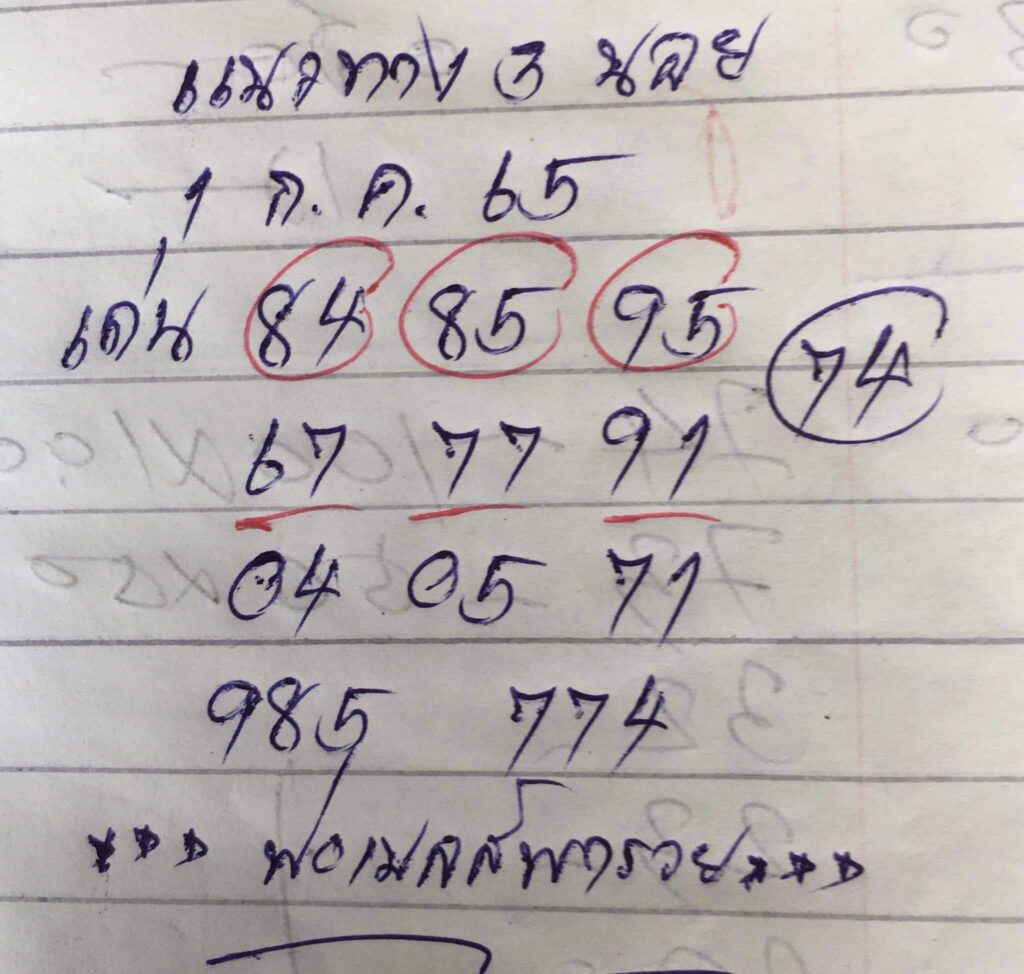 แนวทาง 3 นอย
1 ก.ค. 65
เด่น 84 85 95
74
67 77 91
04 05 71
985 774
*** พ่อเมลล์พารวย ***